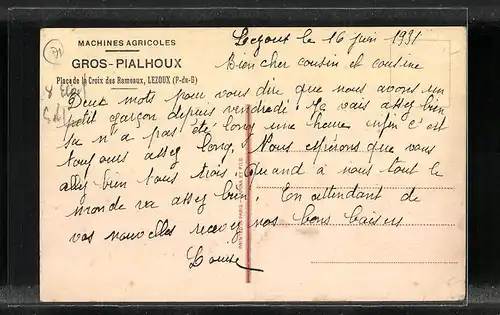 MACHINES AGRICOLES
GROS-PIALHOUX
Place de la Croix des Rameaux, LEZOUX (P-de-D)
Lezoux le 16 juin 1931
Bien cher cousin et cousine
Deux mots pour vous dire que nous avons un
petit garçon depuis vendredi. Sa vais assez bien
sa n'a pas été long une heure enfin c'est
toujours assez long. Nous espérons que vous
allez bien tous trois. Quand à nous tout le
monde va assez bien. En attendant de
vos nouvelles recevez nos bons baisers
Louise